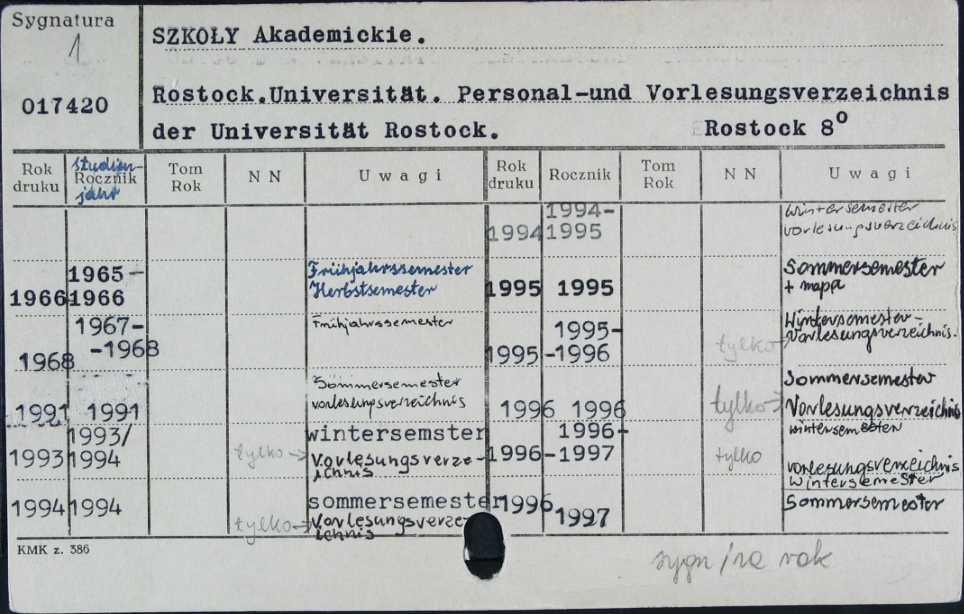 Sygnatura
1
017420
SZKOŁY Akademickie.
Rostock.Universität. Personal-und Vorlesungsverzeichnis
der Universität Rostock. Rostock 8°
Rok druku
Studien-
Rocznik
jahr
Tom Rok
N N
Uwagi
Rok druku
Rocznik
Tom Rok
N N
Uwagi
1966 1965-1966 Frühjahrssemester
Herbstsemester
1968 1967-
-1968 Frühjahrssemester
1991 1991 Sommersemester
vorlesungsverzeichnis
1993 1993/
1994 tylko → wintersemster
Vorlesungsverze-
ichnis
1994 1994 tylko → sommersemester
Vorlesungsverze-
ichnis
1994 1994-
1995 Wintersemester
vorlesungsverzeichnis
1995 1995 Sommersemester
+ mapa
1995 1995-
-1996 tylko → Wintersemester-
Vorlesungsverzeichnis.
1996 1996 Sommersemester
tylko → Vorlesungsverzeichnis
1996 1996-
-1997 wintersemester
tylko vorlesungsverzeichnis
Wintersemester
1996 1997 Sommersemester
KMK z. 386
sygn/za rok